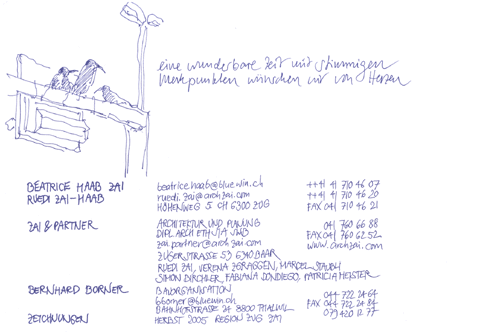 eine wunderbare Zeit mit stimmigen
Merkpunkten wünschen wir von Herzen
BEATRICE HAAB ZAI beatrice.haab@bluewin.ch ++41 41 710 46 07
RUEDI ZAI-HAAB ruedi.zai@archzai.com ++41 41 710 46 20
HÖHENWEG 5 CH 6300 ZUG FAX 041 710 46 21
ZAI & PARTNER ARCHITEKTUR UND PLANUNG 041 760 66 88
DIPL. ARCH ETH SIA SWB FAX 041 760 62 52
zai.partner@archzai.com www.archzai.com
ZUGERSTRASSE 53 6340 BAAR
RUEDI ZAI, VERENA ZGRAGGEN, MARCEL STAUBLI
SIMON DIRCHLER, FABIANA SONDIEGO, PATRICIA MEISTER
BERNHARD BORNER BAUORGANISATION 044 722 24 64
bborner@bluewin.ch FAX 044 722 24 84
BAHNHOFSTRASSE 24 8800 THALWIL 079 420 12 77
ZEICHNUNGEN HERBST 2005 REGION ZUG ZAI